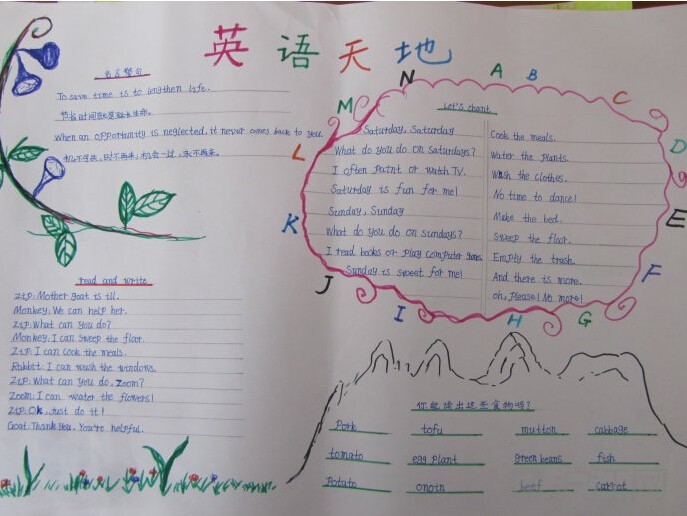 英语天地
名言警句
To save time is to lengthen life.
节省时间就是延长生命。
When an opportunity is neglected, it never comes back to you.
机不可失，时不再来；机会一过，永不再来。
read and write
Zip: Mother goat is ill.
Monkey: We can help her.
Zip: What can you do?
Monkey: I can sweep the floor.
Zip: I can cook the meals.
Rabbit: I can wash the windows.
Zip: What can you do, Zoom?
Zoom: I can water the flowers!
Zip: Ok, Just do it!
Goat: Thank you. You're helpful.
A B C D E F G H I J K L M N
Let's chant
Saturday, Saturday
What do you do on Saturdays?
I often paint or watch TV.
Saturday is fun for me!
Sunday, Sunday
What do you do on Sundays?
I read books or play computer games.
Sunday is sweet for me!
Cook the meals.
Water the plants.
Wash the clothes.
No time to dance!
Make the bed.
Sweep the floor.
Empty the trash.
And there is more.
oh, Please! No more!
你能读出这些食物吗?
Pork tofu mutton cabbage
tomato egg plant green beans fish
Potato onoin beef carrot